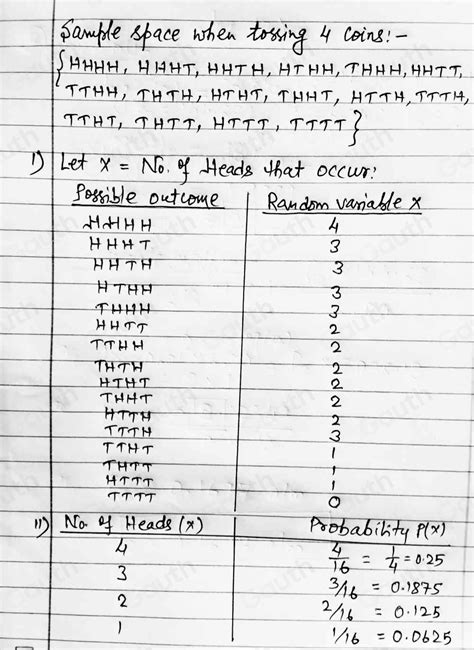 Sample space when tossing 4 coins:-
{HHHH, HHHT, HHTH, HTHH, THHH, HHTT,
TTHH, THTH, HTHT, THHT, HTTH, TTTH,
TTHT, THTT, HTTT, TTTT}
i) Let x = No. of Heads that occur:
Possible outcome Random variable x
HHHH 4
HHHT 3
HHTH 3
HTHH 3
THHH 3
HHTT 2
TTHH 2
THTH 2
HTHT 2
THHT 2
HTTH 2
TTTH 3
TTHT 1
THTT 1
HTTT 1
TTTT 0
ii) No of Heads (x) Probability P(x)
4 4/16 = 1/4 = 0.25
3 3/16 = 0.1875
2 2/16 = 0.125
1 1/16 = 0.0625